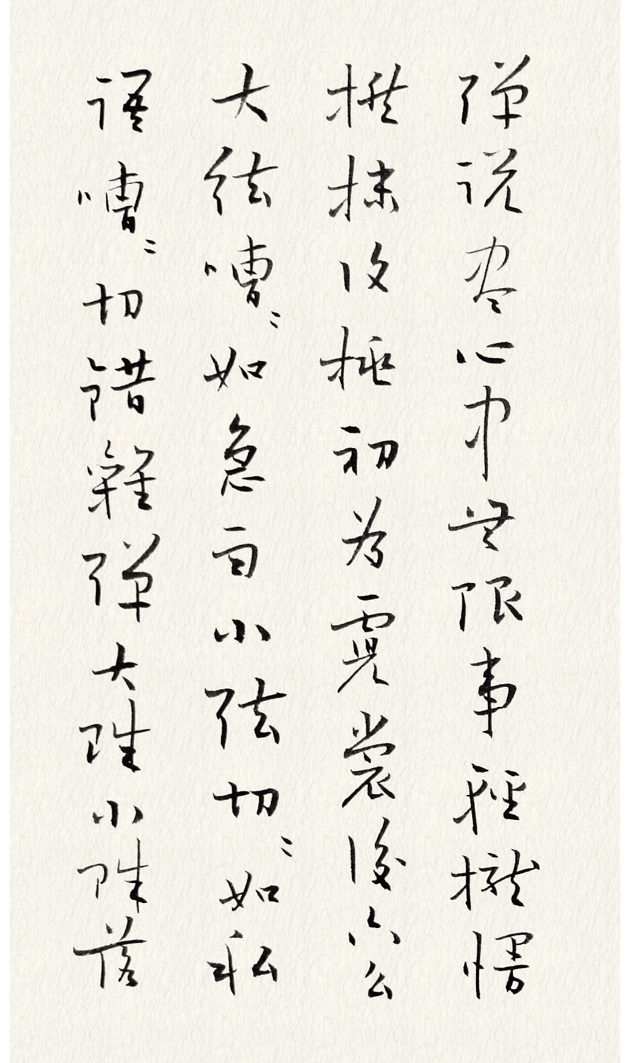 弹说尽心中无限事轻拢慢
撚抹复挑初为霓裳后六幺
大弦嘈〻如急雨小弦切〻如私
语嘈〻切错杂弹大珠小珠落